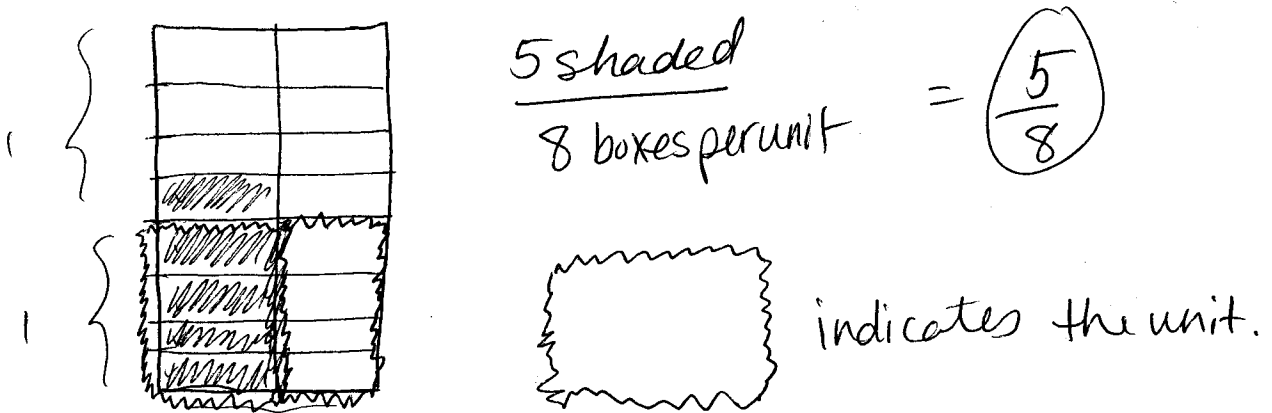 1
1
5 shaded
8 boxes per unit
= 5/8
indicates the unit.